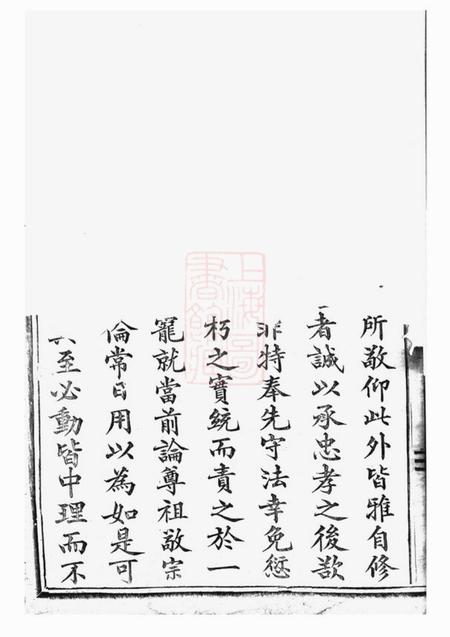 所敬仰此外皆雅自修
者誠以承忠孝之後歆
非特奉先守法幸免愆
朽之實統而責之於一
寵就當前論尊祖敬宗
倫常日用以為如是可
至必動皆中理而不